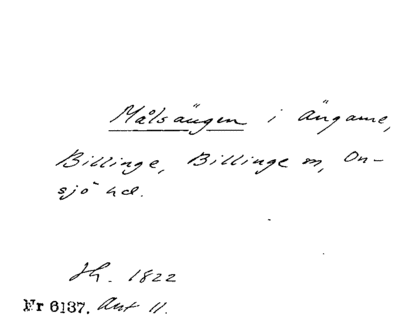 Målsängen i Ängarne,
Billinge, Billinge sn, On-
sjö hd.
Jh. 1822
Nr 6137. Akt 11.